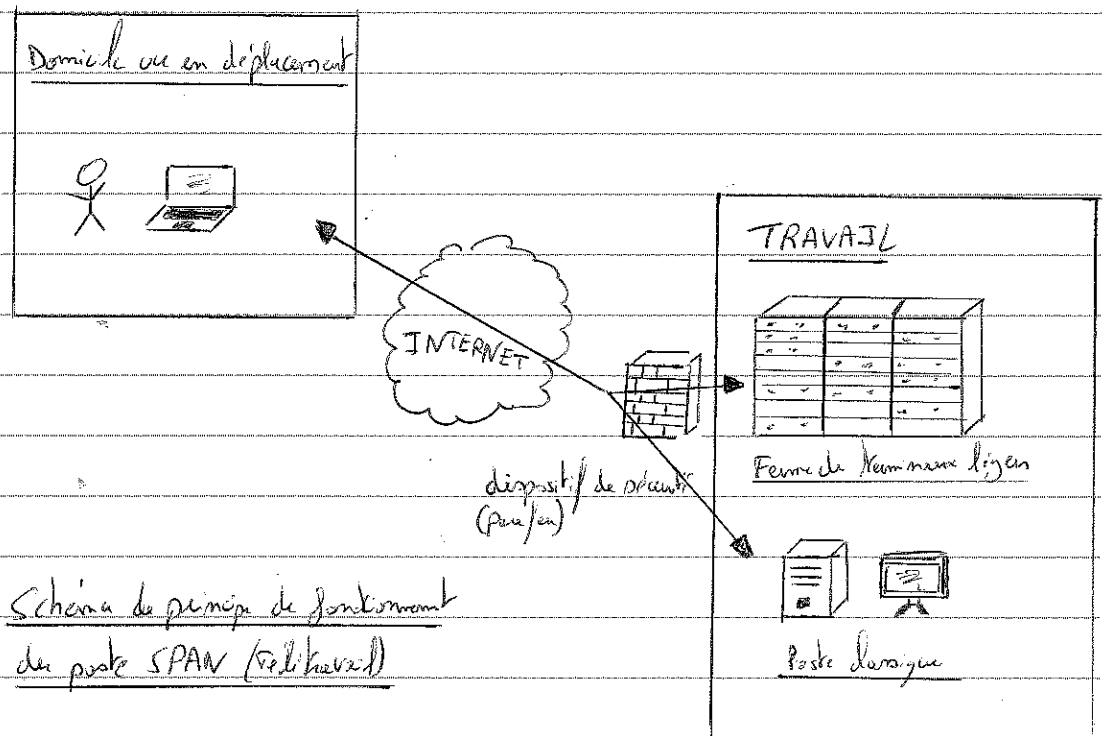 Domicile ou en déplacement
TRAVAIL
INTERNET
Ferme de terminaux légers
dispositif de sécurité
(pare/feu)
Schéma de principe de fonctionnement
du poste SPAN (Télétravail)
Poste classique